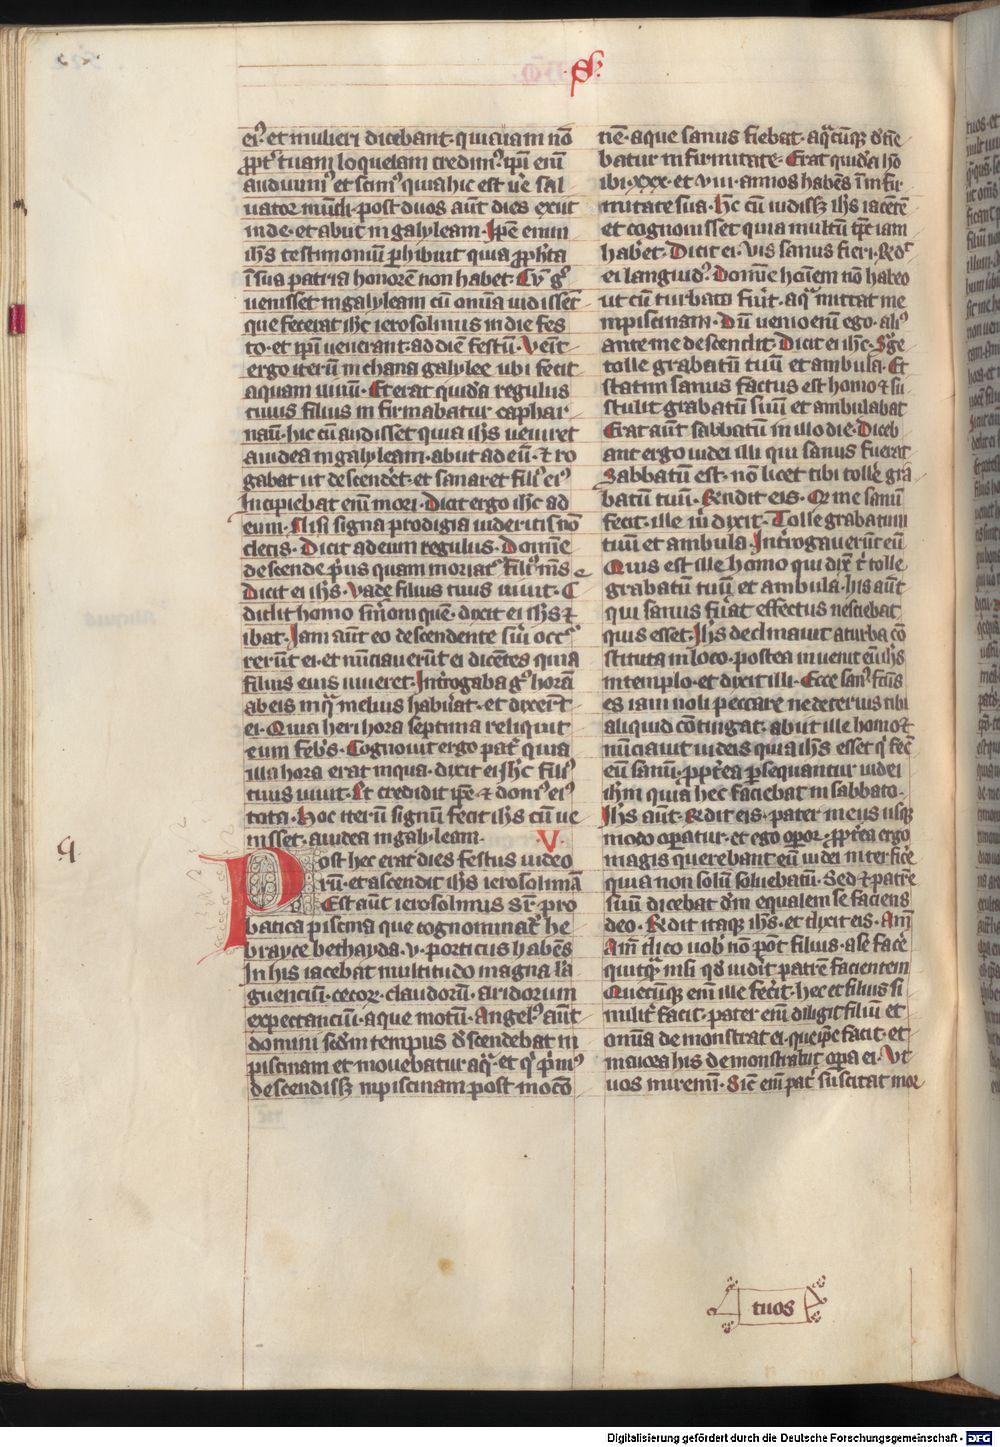 S
ei⁹ et mulieri dicebant · quia iam nō
ꝓpt̄ tuam loquelam credim⁹. ip̄i eni
audiuim⁹ et scim⁹ quia hic est ūe sal
uator mūdi · post duos aūt dies exiit
inde · et abiit in galyleam · Ip̄e enim
ih̄s testimoniū ꝑhibuit quia ꝓph̄ta
ī sua patria honorē non habet · Cū g̊
uenisset in galyleam cū om̄ia uidisset
que fecerat ih̄c ierosolimis in die fes
to · et ip̄i uenerant · ad diē festū · Venit
ergo iterū in chana galylee ubi fecit
aquam uinū · Et erat quidā regulus
cuius filius infirmabatur caphar
naū · hic cū audisset quia ih̄s ueniret
a iudea in galyleam · abiit ad eū · ⁊ ro
gabat ut descend̄et · et sanaret filiū ei⁹
Incipiebat eni mori · Dicit ergo ih̄c ad
eum · Nisi signa prodigia uideritis nō
c̄letis · Dicit ad eum regulus · Domine
descende p̄us quam moriat̄ fili⁹ m̄s
Dicit ei ih̄s · Vade filius tuus uiuit · C
didit homo s̄moni quē · dixit ei ih̄s ⁊
ibat · Iam aūt eo descendente s̄ui occ̄
rerūt ei · et nūciauerūt ei dicētes quia
filius eius uiueret · Int̄rogaba g̊ horā
ab eis in q̄ melius habūat · et dixerūt
ei · Quia heri hora septima reliquit
eum feb̄s · Cognouit ergo pat̄ quia
illa hora erat in qua · dixit ei ih̄c fili⁹
tuus uiuit · Et credidit ip̄e ⁊ dom⁹ ei⁹
tota · Hoc iterū signum fecit ih̄s cū ue
nisset · a iudea in galyleam · V
Post hec erat dies festus iudeo
rū · et ascendit ih̄s ierosolimā
Est aūt ierosolimis sr̄ pro
batica piscina que cognominat̄ he
brayce bethayda · v · porticus habēs
In his iacebat multitudo magna lā
guenciū · cecoꝝ · claudorū · aridorum
expectanciū · aque motū · Angel⁹ aūt
domini sc̄dm tempus d̄scendebat in
piscinam et mouebatur aq̄ · et q̄ p̄im⁹
descendissꝫ in piscinam post mocō
nē · aque sanus fiebat · a q̄cūqꝫ d̄tie
batur infirmitate · Erat quidā ho
ibi · xxx · et viii · annos habēs ī infir
mitate sua · Hc̄ cū uidissꝫ ih̄s iacētē
et cognouisset quia multū tp̄e iam
hab̄et · Dicit ei · Vis sanus fieri · Rēd̄t
ei langiud⁹ · Domine hoīem nō habeo
ut cū turbata fūit · aq̄ mittat me
in piscinam · Dū uenio enī ego · ali⁹
ante me descendit · Dicit ei ih̄c · S̄ge
tolle grabatū tuū et ambula · Et
statim sanus factus est homo ⁊ su
stulit grabatū suū et ambulabat
Erat aūt sabbatū in illo die · Diceb
ant ergo iudei illi qui sanus fuerat
Sabbatū est · nō licet tibi tollē grā
batū tuū · Rēndit eis · Q̄ me sanū
fecit · ille m̄ dixit · Tolle grabatum
tuū et ambula · Int̄rogauerūt eū
Quis est ille homo qui dix̄ t̄ tolle
grabatū tuū et ambula · his aūt
qui sanus fūat effectus nesciebat
quis esset · Ih̄s declinauit a turba cō
stituta in loco · postea inuenit eū ih̄s
in templo · et dixit illi · Ecce san⁹ fc̄us
es iam noli peccare ne deterius tibi
aliquid cōtingat · abiit ille homo ⁊
nūciauit iudeis quia ih̄s esset q̄ fec̄
eū sanū · ꝓpt̄ea ꝑsequantur iudei
ih̄m quia hec faciebat in sabbato ·
Ih̄s aūt · Rēdit eis · pater meus usqꝫ
modo opatur · et ego opor · ꝓpt̄ea ergo
magis querebant eū iudei inter fic̄e
quia non solū soluebatū · Sed ⁊ patrē
suū dicebat d̄m equalem se faciens
deo · Rēdit itaqꝫ ih̄s · et dixit eis · Am̄
Am̄ dico uob̄ nō pōt filius · a se facē
quitqꝫ nisi q̄d uid̄it patrē facientem
Quecūqꝫ eni ille fec̄it · hec et filius si
milit̄ facit · pater eni diligit filiū et
om̄ia demonstrat ei · que ip̄e facit · et
maiora his demonstrabit oꝑa ei · Vt
uos miremī · Sic̄ eni pat̄ suscitat mor
tuos
Digitalisierung gefördert durch die Deutsche Forschungsgemeinschaft - DFG